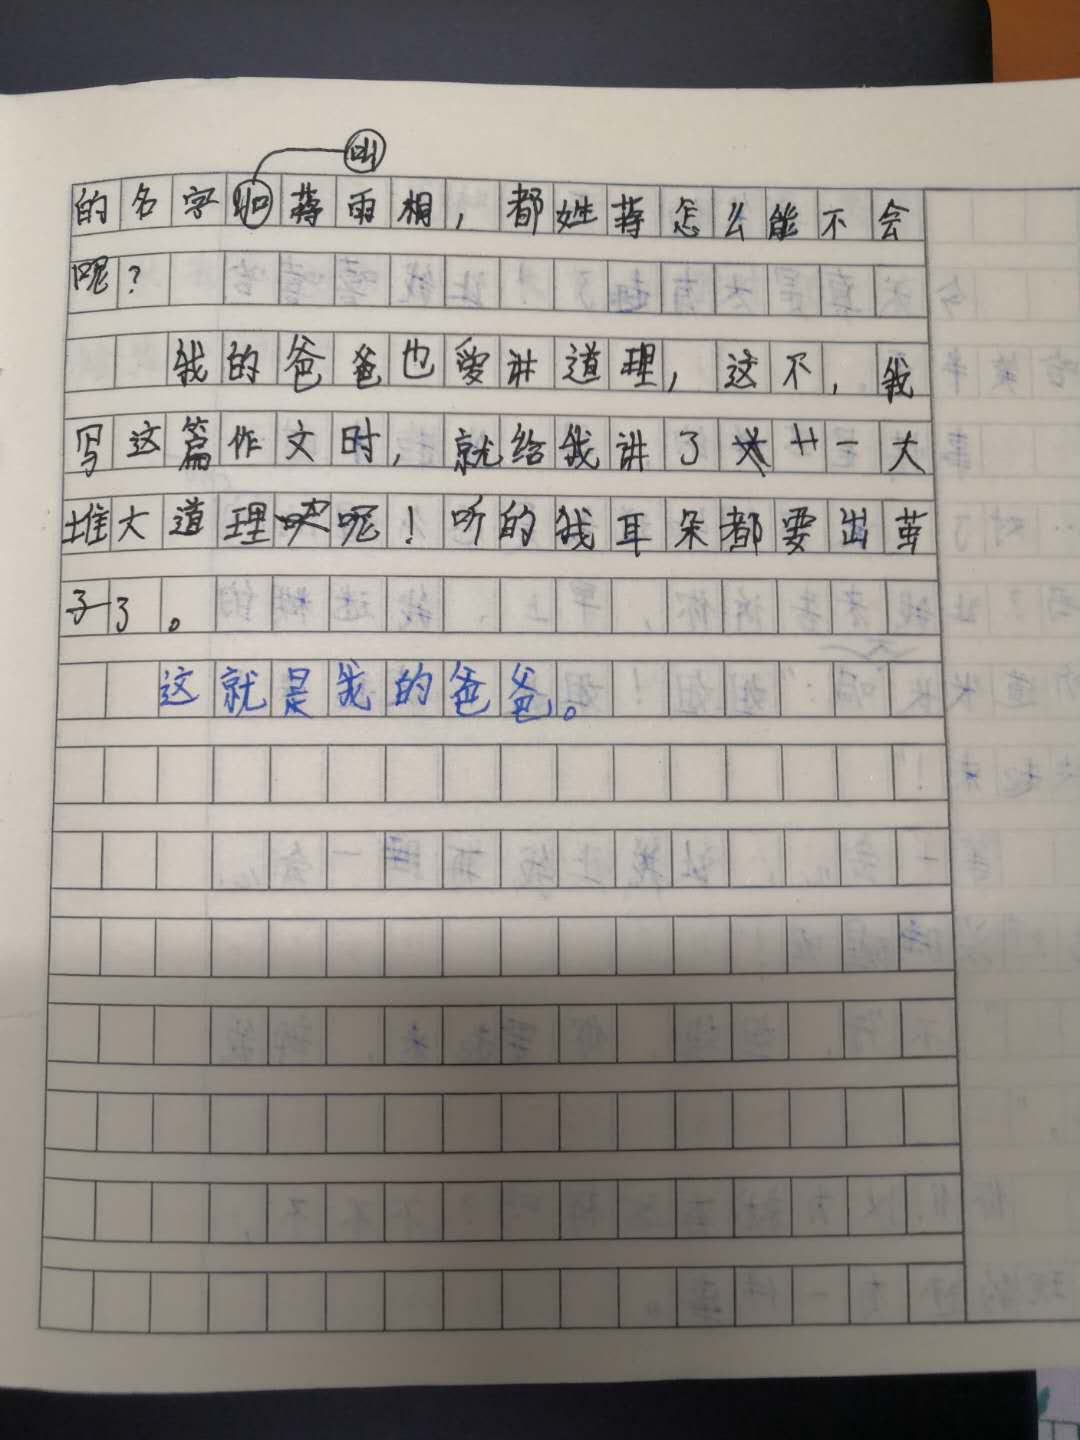 叫
的名字蒋雨相，都姓蒋怎么能不会
呢？
我的爸爸也爱讲道理，这不，我
写这篇作文时，就给我讲了一大
堆大道理呢！听的我耳朵都要出茧
子了。
这就是我的爸爸。